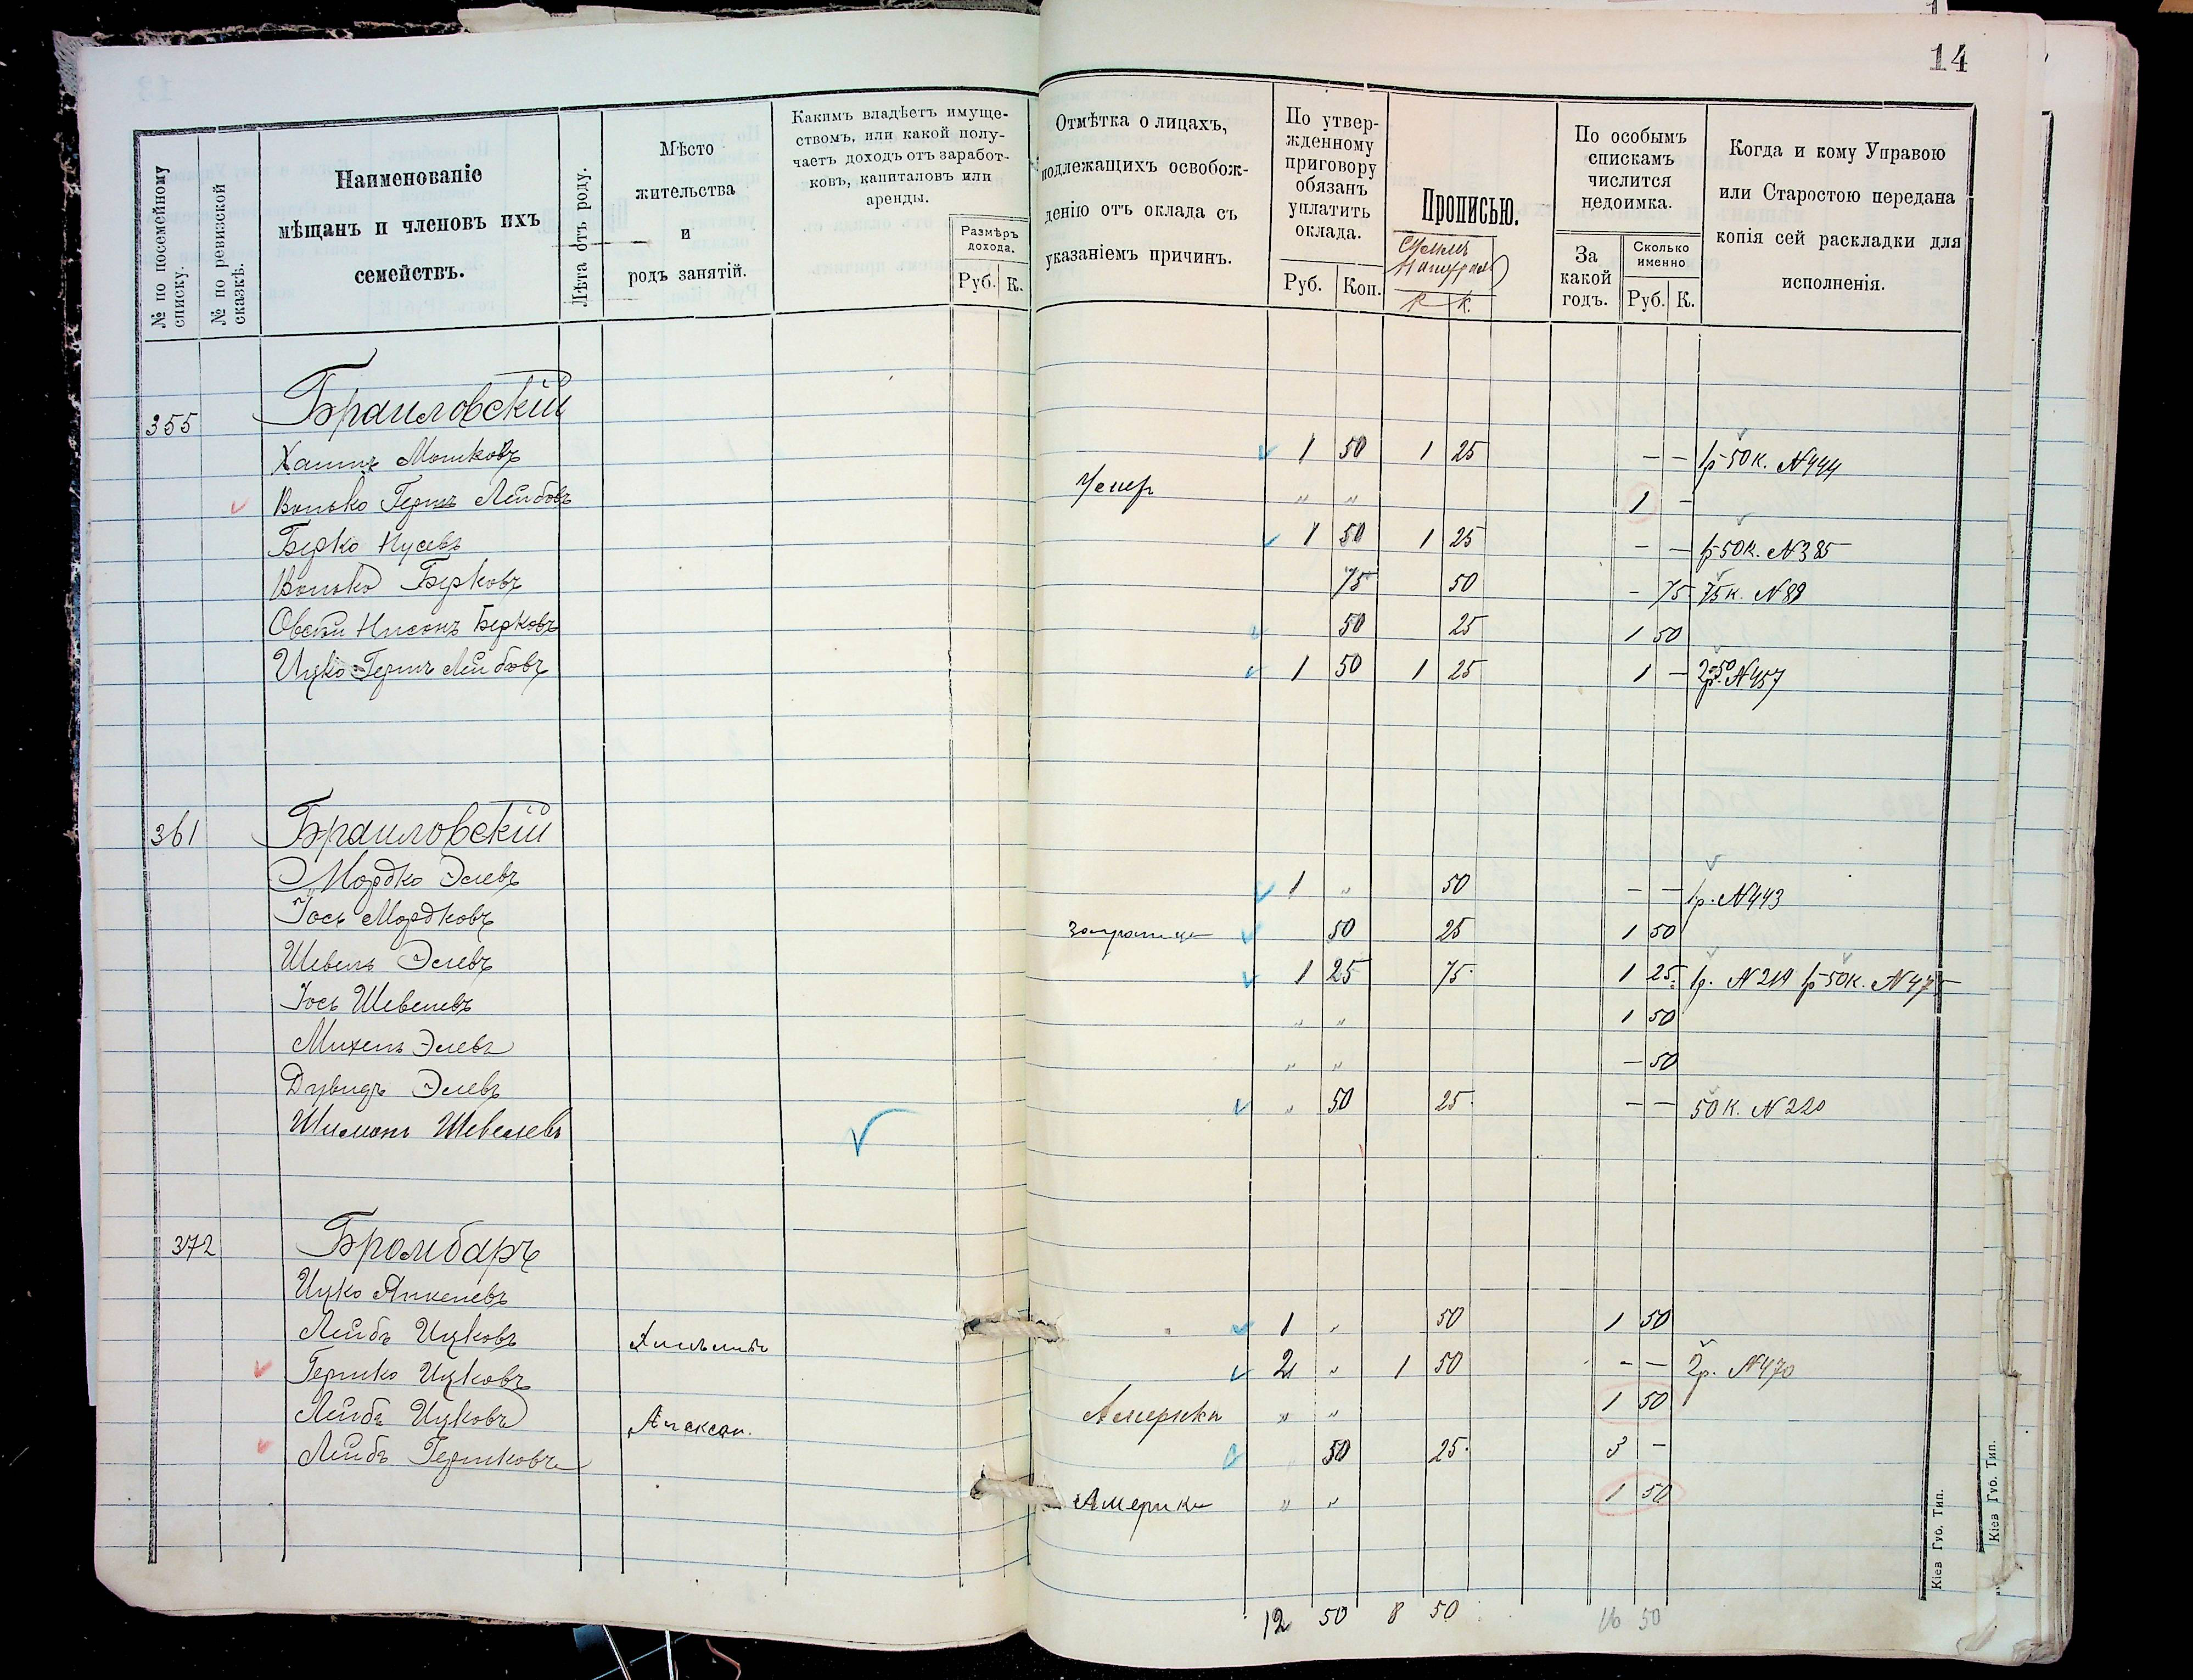 14
№ по посемейному списку.
№ по ревизской сказкѣ.
Наименованіе мѣщанъ и членовъ ихъ семействъ.
Лѣта отъ роду.
Мѣсто жительства и родъ занятій.
Какимъ владѣетъ имуществомъ, или какой получаетъ доходъ отъ заработковъ, капиталовъ или аренды.
Размѣръ дохода.
Руб. К.
Отмѣтка о лицахъ, подлежащихъ освобожденію отъ оклада съ указаніемъ причинъ.
По утвержденному приговору обязанъ уплатить оклада.
Руб. Коп.
Прописью.
Р К.
По особымъ спискамъ числится недоимка.
За какой годъ.
Сколько именно
Руб. К.
Когда и кому Управою или Старостою передана копія сей раскладки для исполненія.
355 Браиловскій
Хаимъ Мошковъ 1 50 1 25 — — 1р 50к. №444
Волько Гершъ Лейбовъ Умер „ „ 1 -
Берко Нусевъ 1 50 1 25 - — 1р 50к. №385
Волько Берковъ 75 50 - 75 75к. №89
Овсѣй Нисонъ Берковъ 50 25 1 50
Ицко Гершъ Лейбовъ 1 50 1 25 1 — 2р. 50 №457
361 Браиловскій
Мордко Элевъ 1 „ 50 — — 1р. №443
Іось Мордковъ заграница 50 25 1 50
Шевель Элевъ 1 25 75 1 25 1р. №219 1р 50к. №475
Іось Шевелевъ „ „ 1 50
Михель Элевъ „ „ — 50
Дувидъ Элевъ „ 50 25 — — 50к. №220
Шимонъ Шевелевъ
372 Бромбаръ
Ицко Янкелевъ
Лейбъ Ицковъ 1 „ 50 1 50
Гершко Ицковъ 2 „ 1 50 - — 2р. №470
Лейбъ Ицковъ Алексан. Америка „ „ 1 50
Лейбъ Гершковъ 50 25 3 —
Америка „ „ 1 50
12 50 8 50 16 50
Кіев Губ. Тип.
Кіев Губ. Тип.